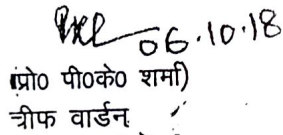 06.10.18
(प्रो0 पी0के0 शर्मा)
चीफ वार्डन